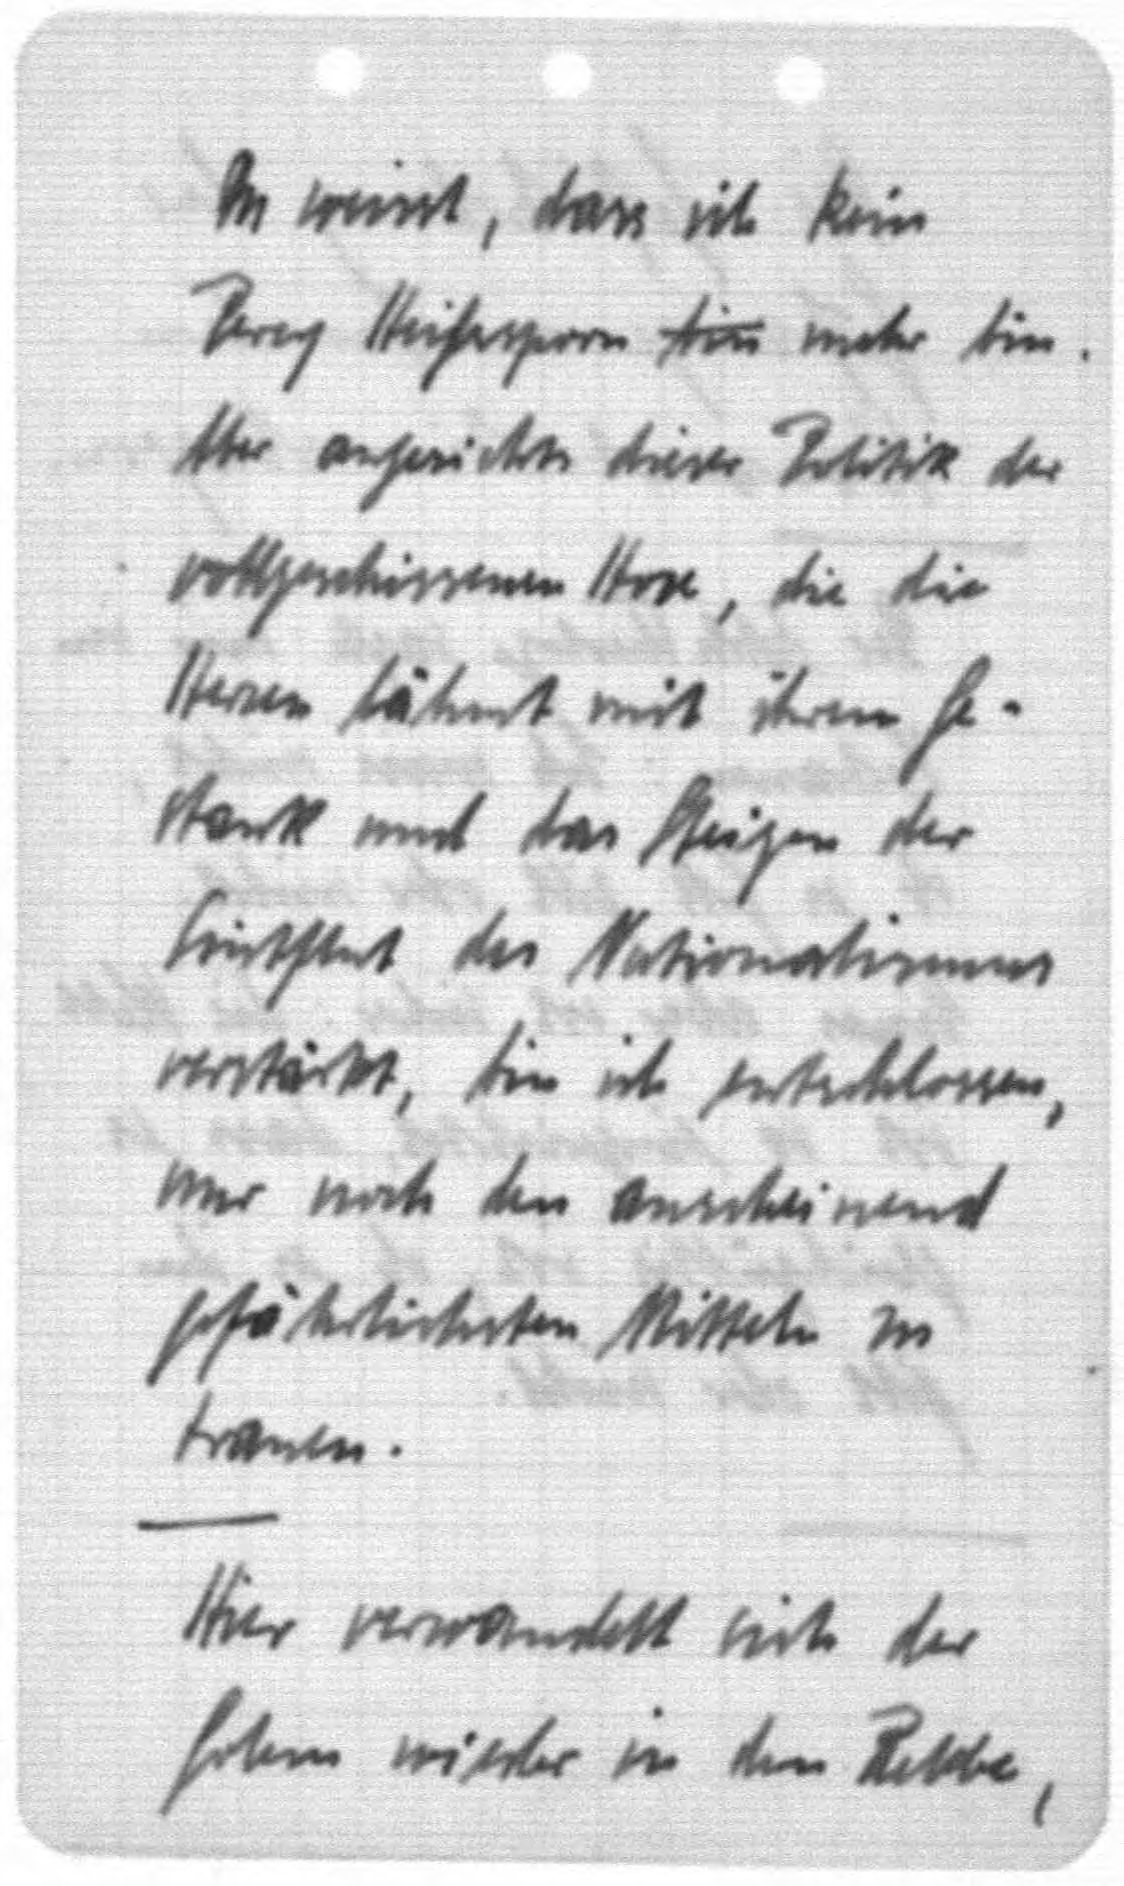 Du weisst, dass ich kein
Percy Heisssporn bin mehr bin.
Aber angesichts dieser Politik der
vollgeschissenen Hose, die die
Herzen lähmt mit ihrem Ge-
stank und das Steigen der
Sintflut des Nationalismus
verstärkt, bin ich entschlossen,
nur noch den anscheinend
gefährlichsten Mitteln zu
trauen.
Hier verwandelt sich der
Golem wieder in den Rebbe,